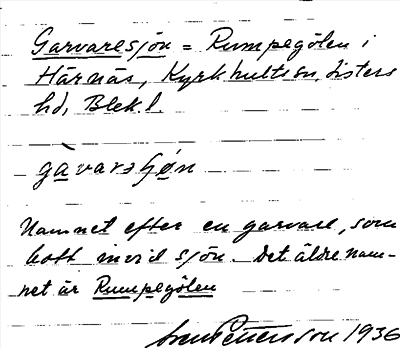 Garvaresjön = Rumpegölen i
Härnäs, Kyrkhults sn, Listers
hd, Blekl.
gàvarsɧøn
Namnet efter en garvare, som
bott invid sjön. Det äldre nam-
net är Rumpegölen
Pettersson 1936